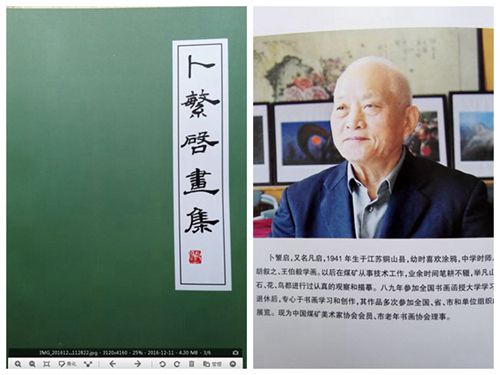 卜繁启畫集
IMG_201612__112822.jpg - 3120x4160 - 25% - 2016-12-11 - 4.30 MB - 1/6
美化
管理
卜繁启，又名凡启，1941年生于江苏铜山县，幼时喜欢涂鸦，中学时师
胡叙之、王伯毅学画。以后在煤矿从事技术工作，业余时间笔耕不辍，举凡山
石、花、鸟都进行过认真的观察和描摹。八九年参加全国书画函授大学学习
退休后，专心于书画学习和创作，其作品多次参加全国、省、市和单位组织
展览。现为中国煤矿美术家协会会员、市老年书画协会理事。